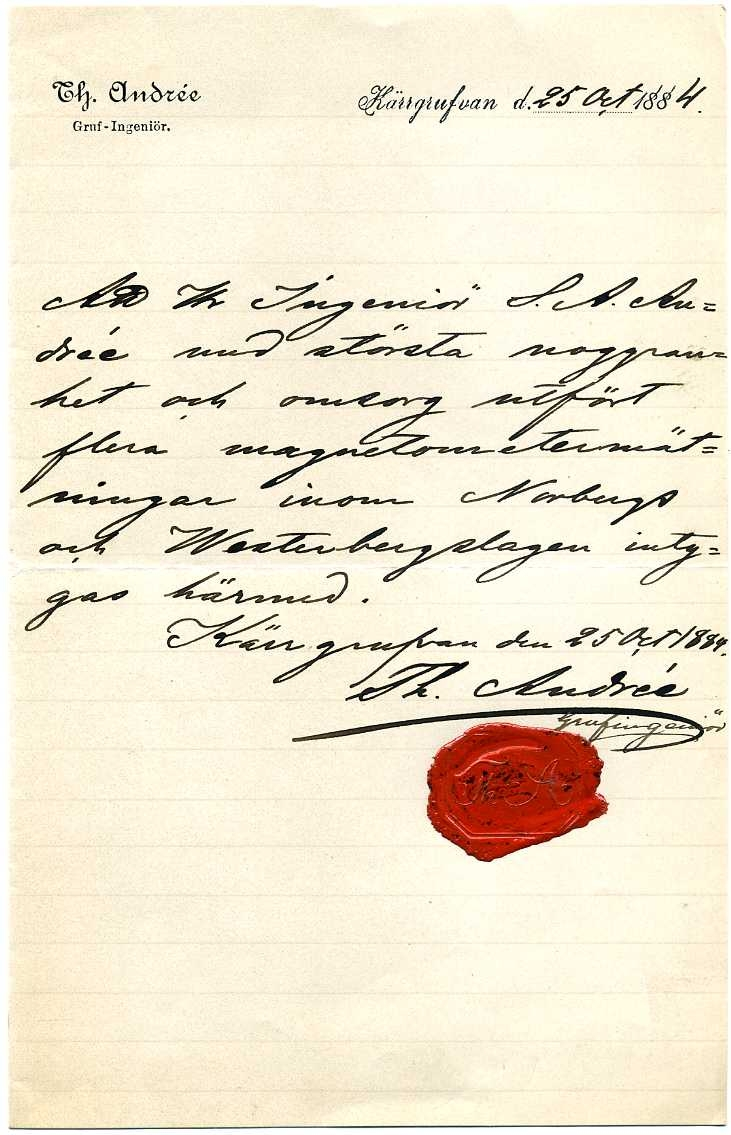 Th. Andrée
Gruf-Ingeniör.
Kärrgrufvan d. 25 Oct 1884.
Att Hr Ingeniör S. A. An=
drée med största noggran=
het och omsorg utfört
flera magnetometermät=
ningar inom Norbergs
och Westerbergslagen inty=
gas härmed.
Kärrgrufvan den 25 Oct 1884.
Th. Andrée
Grufingeniör